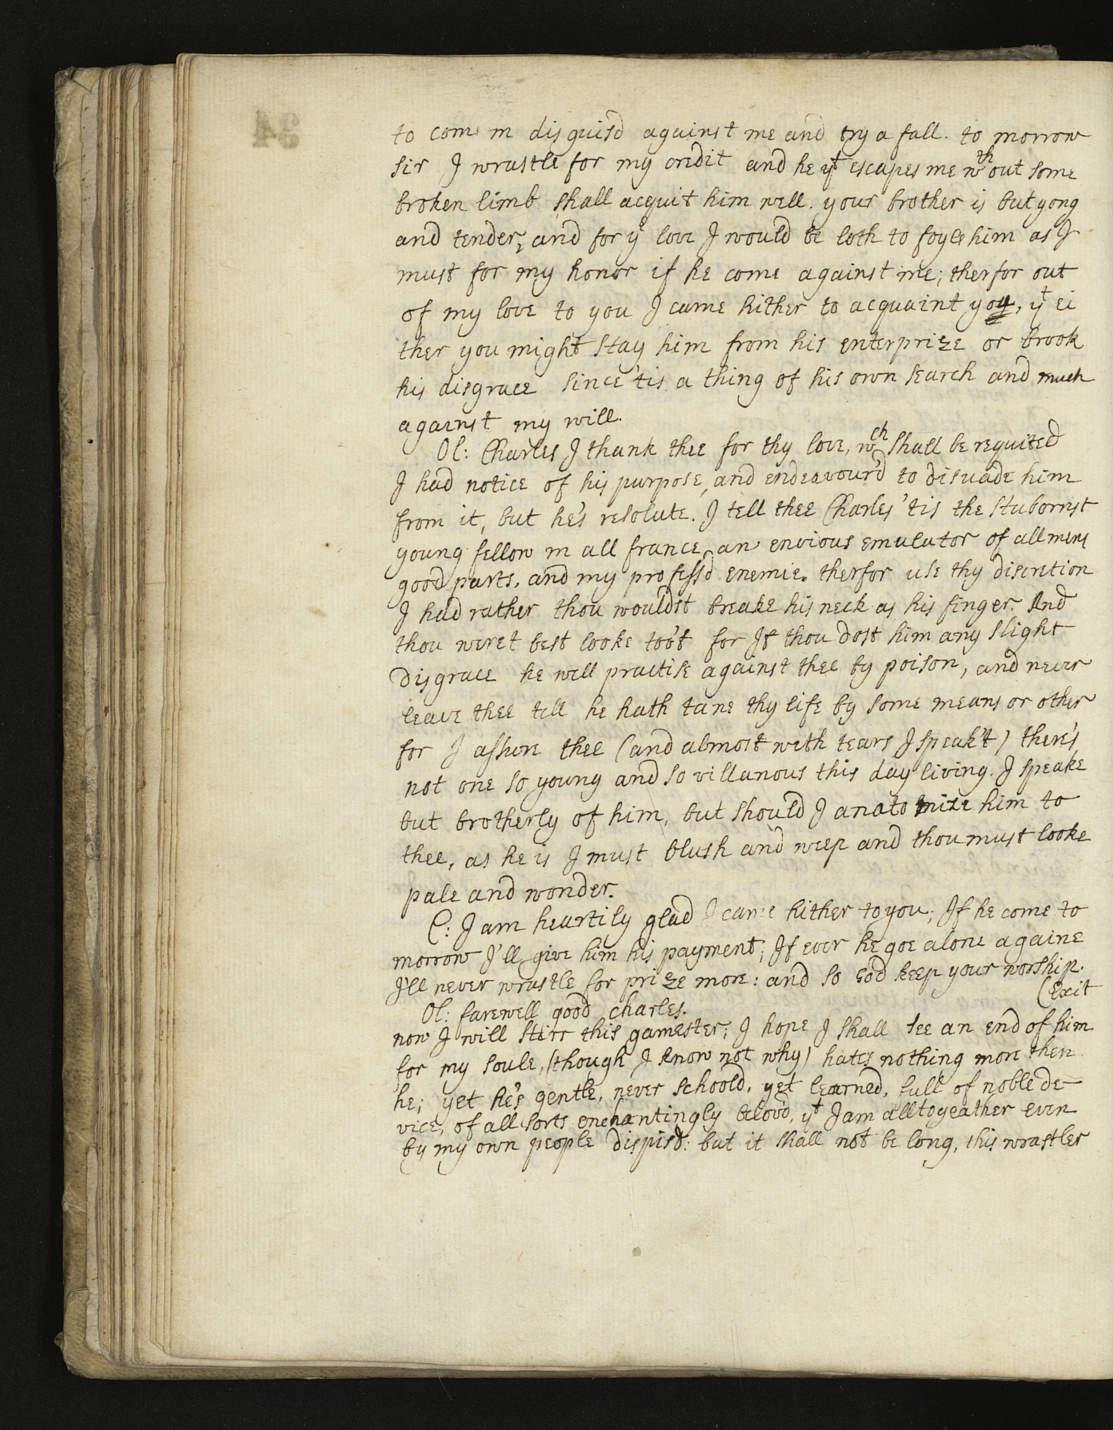 34
to come in disguisd against me and try a fall. to morrow
sir I wrastle for my credit and he yt escapes me wth out some
broken limb shall acquit him well. your brother is but yong
and tender, and for yr love I would be loth to foyle him as I
must for my honor if he come against me; therfor out
of my love to you I came hither to acquaint you, yt ei
ther you might stay him from his enterprize or brook
his disgrace since 'tis a thing of his own search and much
against my will.
Ol: Charles I thank thee for thy love, wch shall be requited
I had notice of his purpose, and endeavour'd to disuade him
from it, but he's resolute. I tell thee Charles 'tis the stubornst
young fellow in all france, an envious emulator of all mens
good parts, and my profess'd enemie. therfor use thy discretion
I had rather thou wouldst breake his neck as his finger. And
thou weret best looke too't for If thou dost him any slight
disgrace he will practise against thee by poison, and never
leave thee till he hath tane thy life by some means or other
for I assure thee (and almost with tears I speak't) there's
not one so young and so villanous this day living. I speake
but brotherly of him, but should I anatomize him to
thee, as he is I must blush and weep and thou must looke
pale and wonder.
C: I am heartily glad I came hither to you; If he come to
morrow I'll give him his payment; If ever he goe alone againe
I'll never wrastle for prize more: and so God keep your worship.
(Exit
Ol: farewell good charles.
now I will stirr this gamester; I hope I shall see an end of him
for my soule, (though I know not why) hates nothing more then
he; yet he's gentle, never schoold, yet learned, full of noble de-
vice, of all sorts enchantingly belov'd, yt I am alltogeather even
by my own people dispisd: but it shall not be long, this wrastler